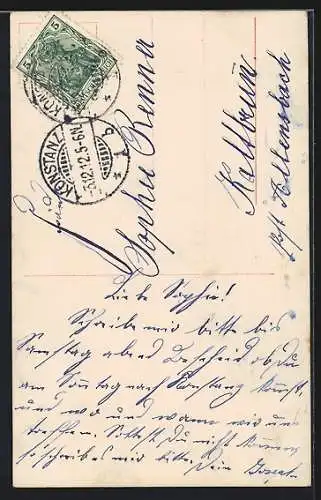 KONSTANZ
-5.12.12.5-6N.
* 1 b
Sophie Renner
Kaltbrunn
Post Allensbach
Liebe Sophie!
Schreibe mir bitte bis
Samstag abend Bescheid ob Du
am Sonntag nach Konstanz kommst,
und wo und wann wir uns
treffen. Solltest Du nicht kommen
so schreib es mir bitte. Dein